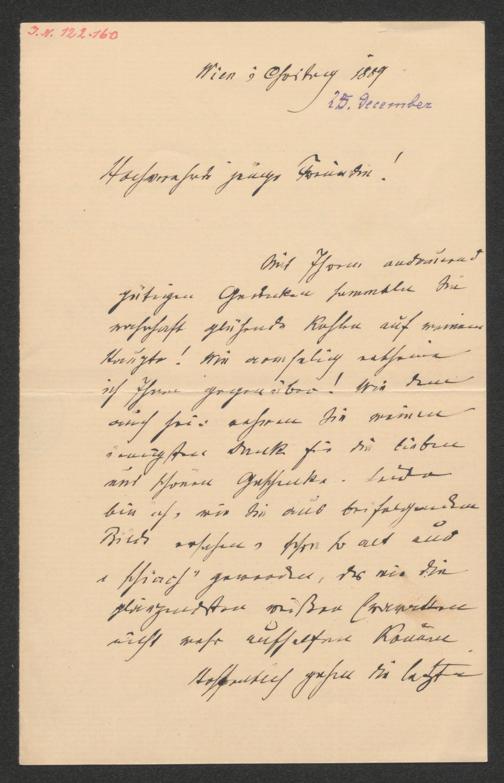 J.N. 122.160
Wien, Christtag 1889
25. December
Hochverehrte junge Freundin!
Mit Ihrem andauernd
gütigen Gedenken sammeln Sie
wahrhaft glühende Kohlen auf meinem
Haupte! Wie armselig erscheine
ich Ihnen gegenüber! Wie dem
auch sei: nehmen Sie meinen
innigsten Dank für die lieben
und schönen Geschenke. Leider
bin ich, wie Sie aus beifolgendem
Bilde ersehen, schon so alt und
"schiach" geworden, daß mir die
glänzendsten weißen Cravatten
nicht mehr aufhelfen können.
Hoffentlich gehen die letzten